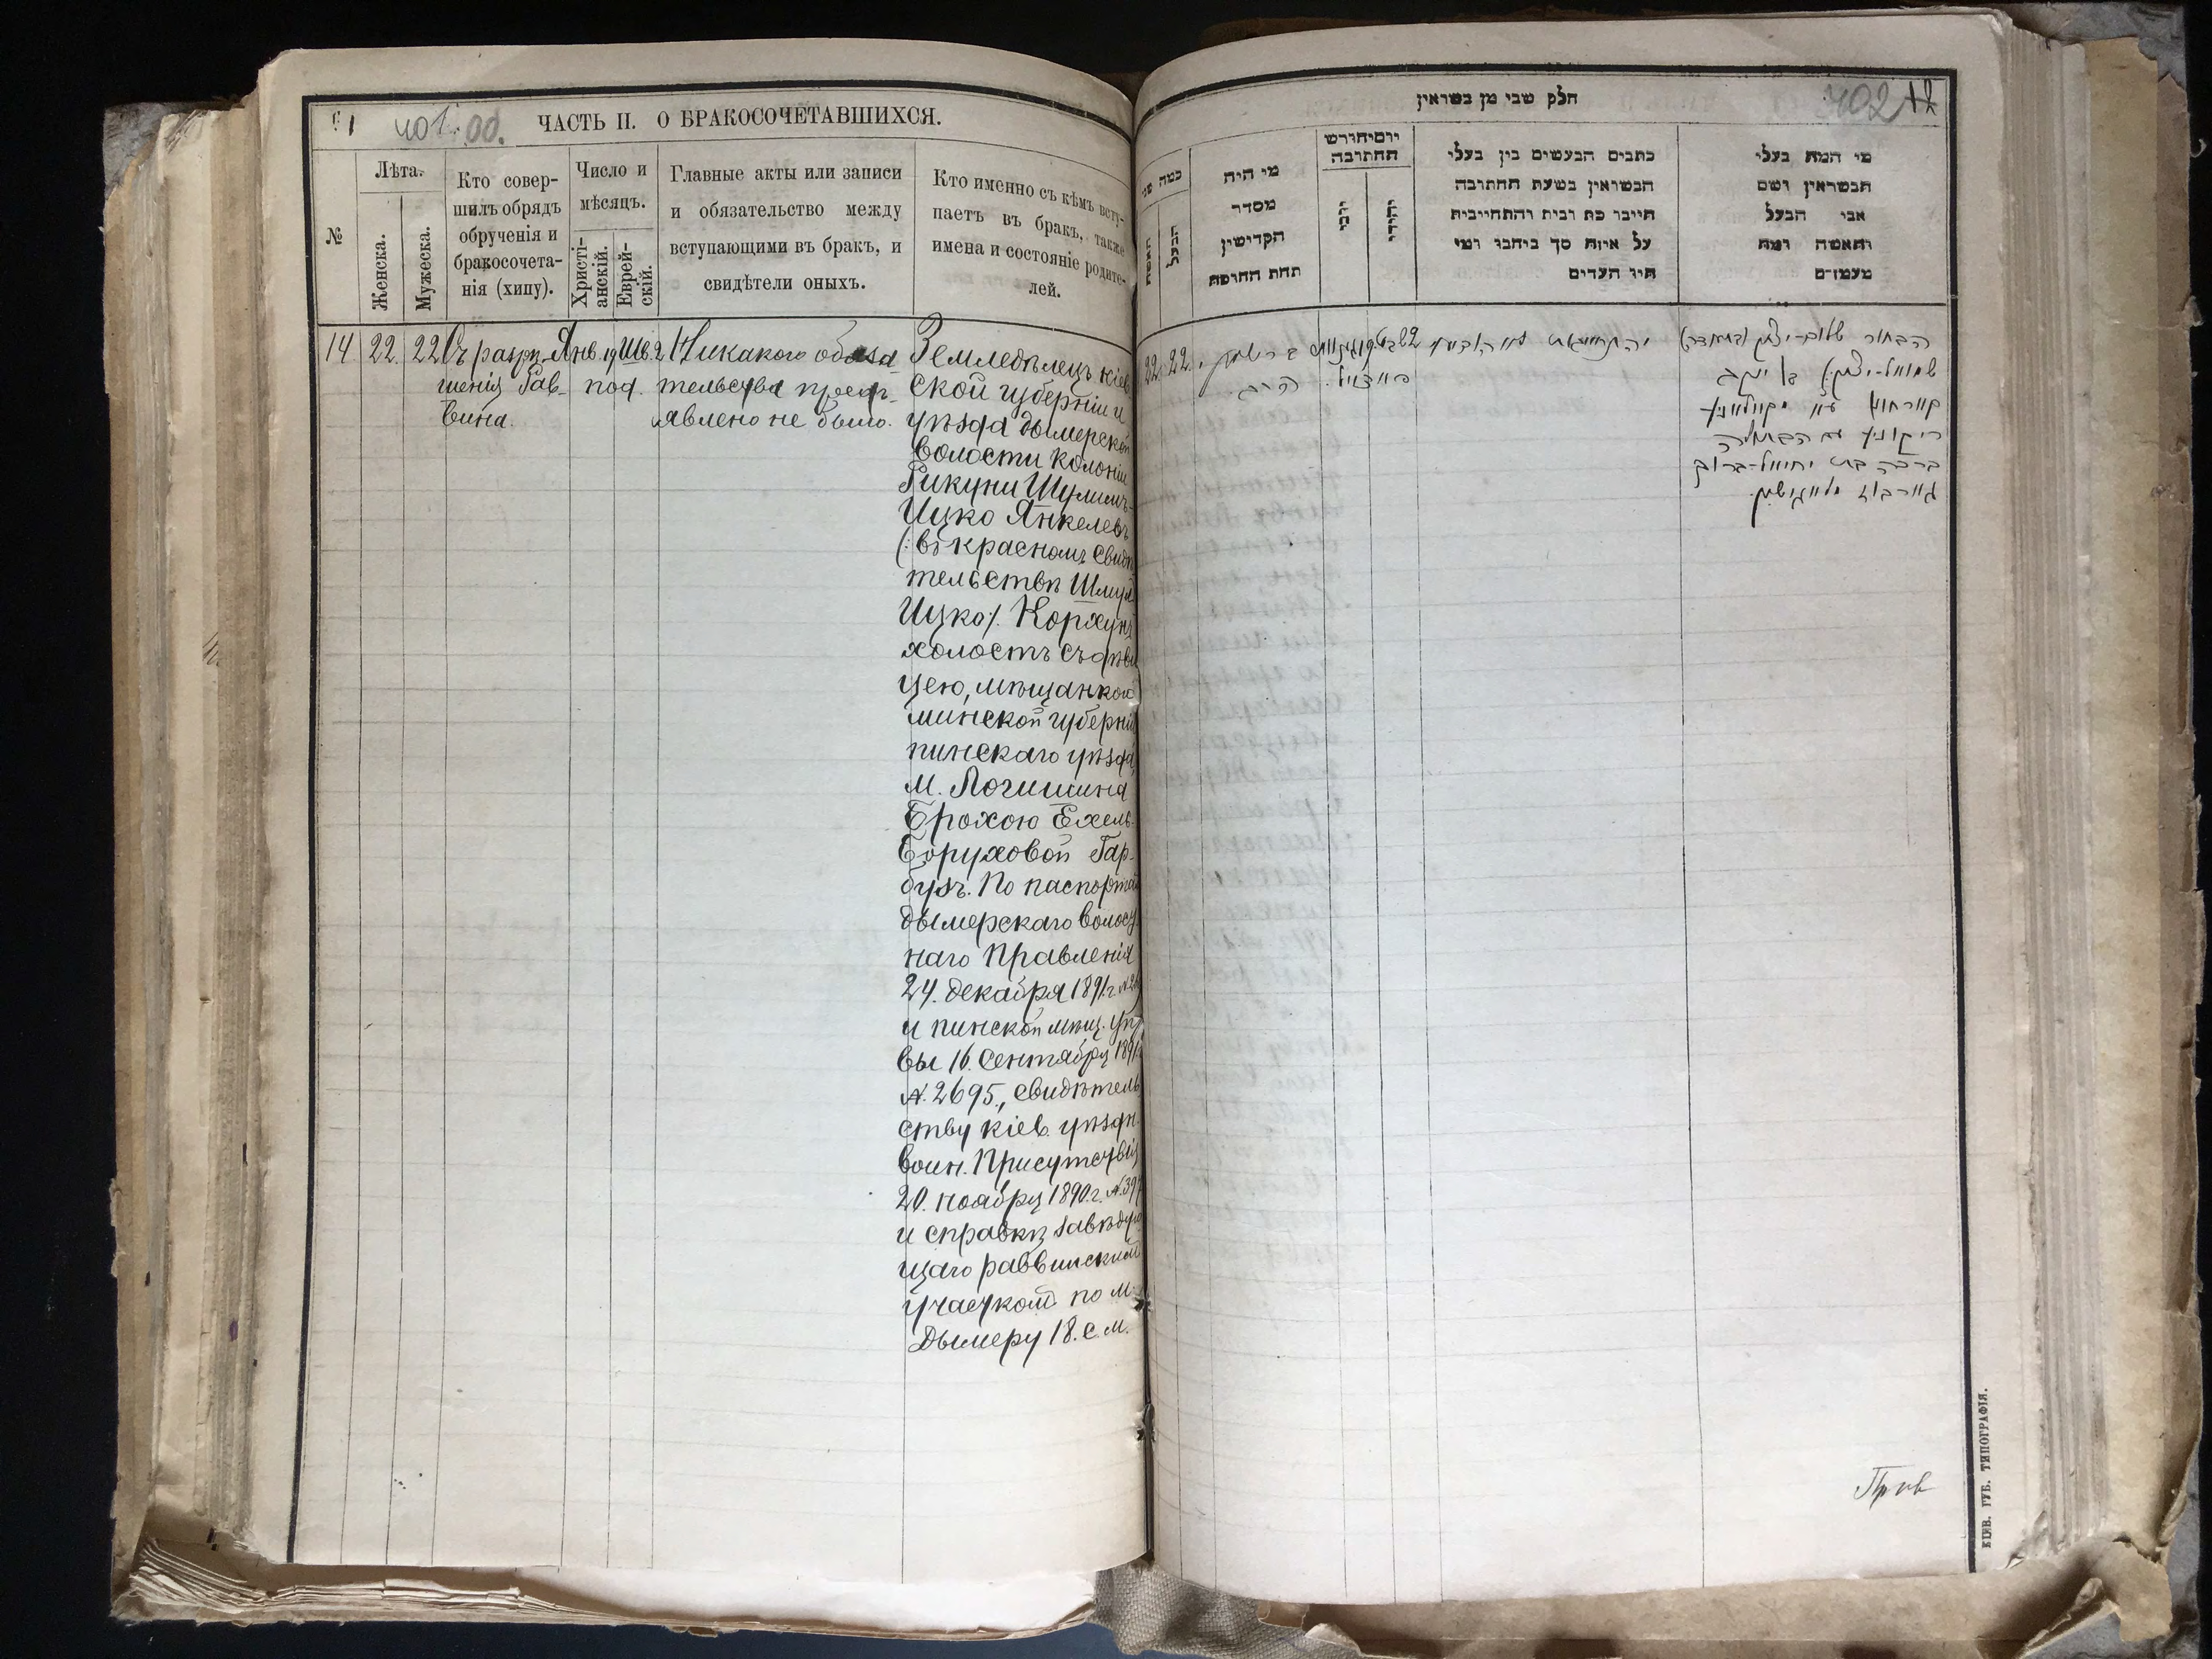 401
ЧАСТЬ II. О БРАКОСОЧЕТАВШИХСЯ.
№
Лѣта.
Женска.
Мужеска.
Кто совер-
шилъ обрядъ
обрученія и
бракосочета-
нія (хипу).
Число и
мѣсяцъ.
Христі-
анскій.
Еврей-
скій.
Главные акты или записи
и обязательство между
вступающими въ бракъ, и
свидѣтели оныхъ.
Кто именно съ кѣмъ всту-
паетъ въ бракъ, также
имена и состояніе родите-
лей.
14
22.
22
Съ разрѣ-
шенія Рав-
вина.
Янв. 19
под.
Шв. 21
Никакого обяза
тельства предъ-
явлено не было.
Земледѣлецъ Кіев
ской губерніи и
уѣзда дымерской
волости колоніи
Рикуни Шулимъ-
Ицко Янкелевъ
(: въ красномъ свидѣ
тельствѣ Шмул
Ицко :). Корхунъ
холостъ съ дѣви
цею, мѣщанкою
минской губерніи
пинскаго уѣзда,
м. Логишина
Брохою Ехель-
Боруховой Гар-
бузъ. По паспортам
дымерскаго волост
наго Правленія
24. декабря 1891. г. №
и пинской мѣщ. упр
вы 16. Сентября 1891
№. 2695., свидѣтель
ству кіев. уѣздн.
воин. Присутствія
20. ноября 1890. г. №. 397
и справкѣ завѣдую
щаго раввинским
участкомъ по м.
Дымеру 18. с. м.
402
12
חלק שני מן נשואין
כמה שני
האשה
הבעל
מי היה
מסדר
הקדישין
תחת החופה
יום וחודש
החתונה
נוצרי
יהודי
כתבים הנעשים בין בעלי
הנשואין בשעת החתונה
חייבו כת ובית והתחייבית
על איזה סך ביתבו ומי
היו העדים
מי המה בעלי
הנשואין ושם
אבי הבעל
והאשה ומה
מעמדם
22.
22.
הרב.
הבחור שלום-יצחק
שמואל-יצחק
קורחון
ריקוניץ עם הבתולה
ברכה בת יחיאל-ברוך
גורבוז
КІЕВ. ГУБ. ТИПОГРАФІЯ.